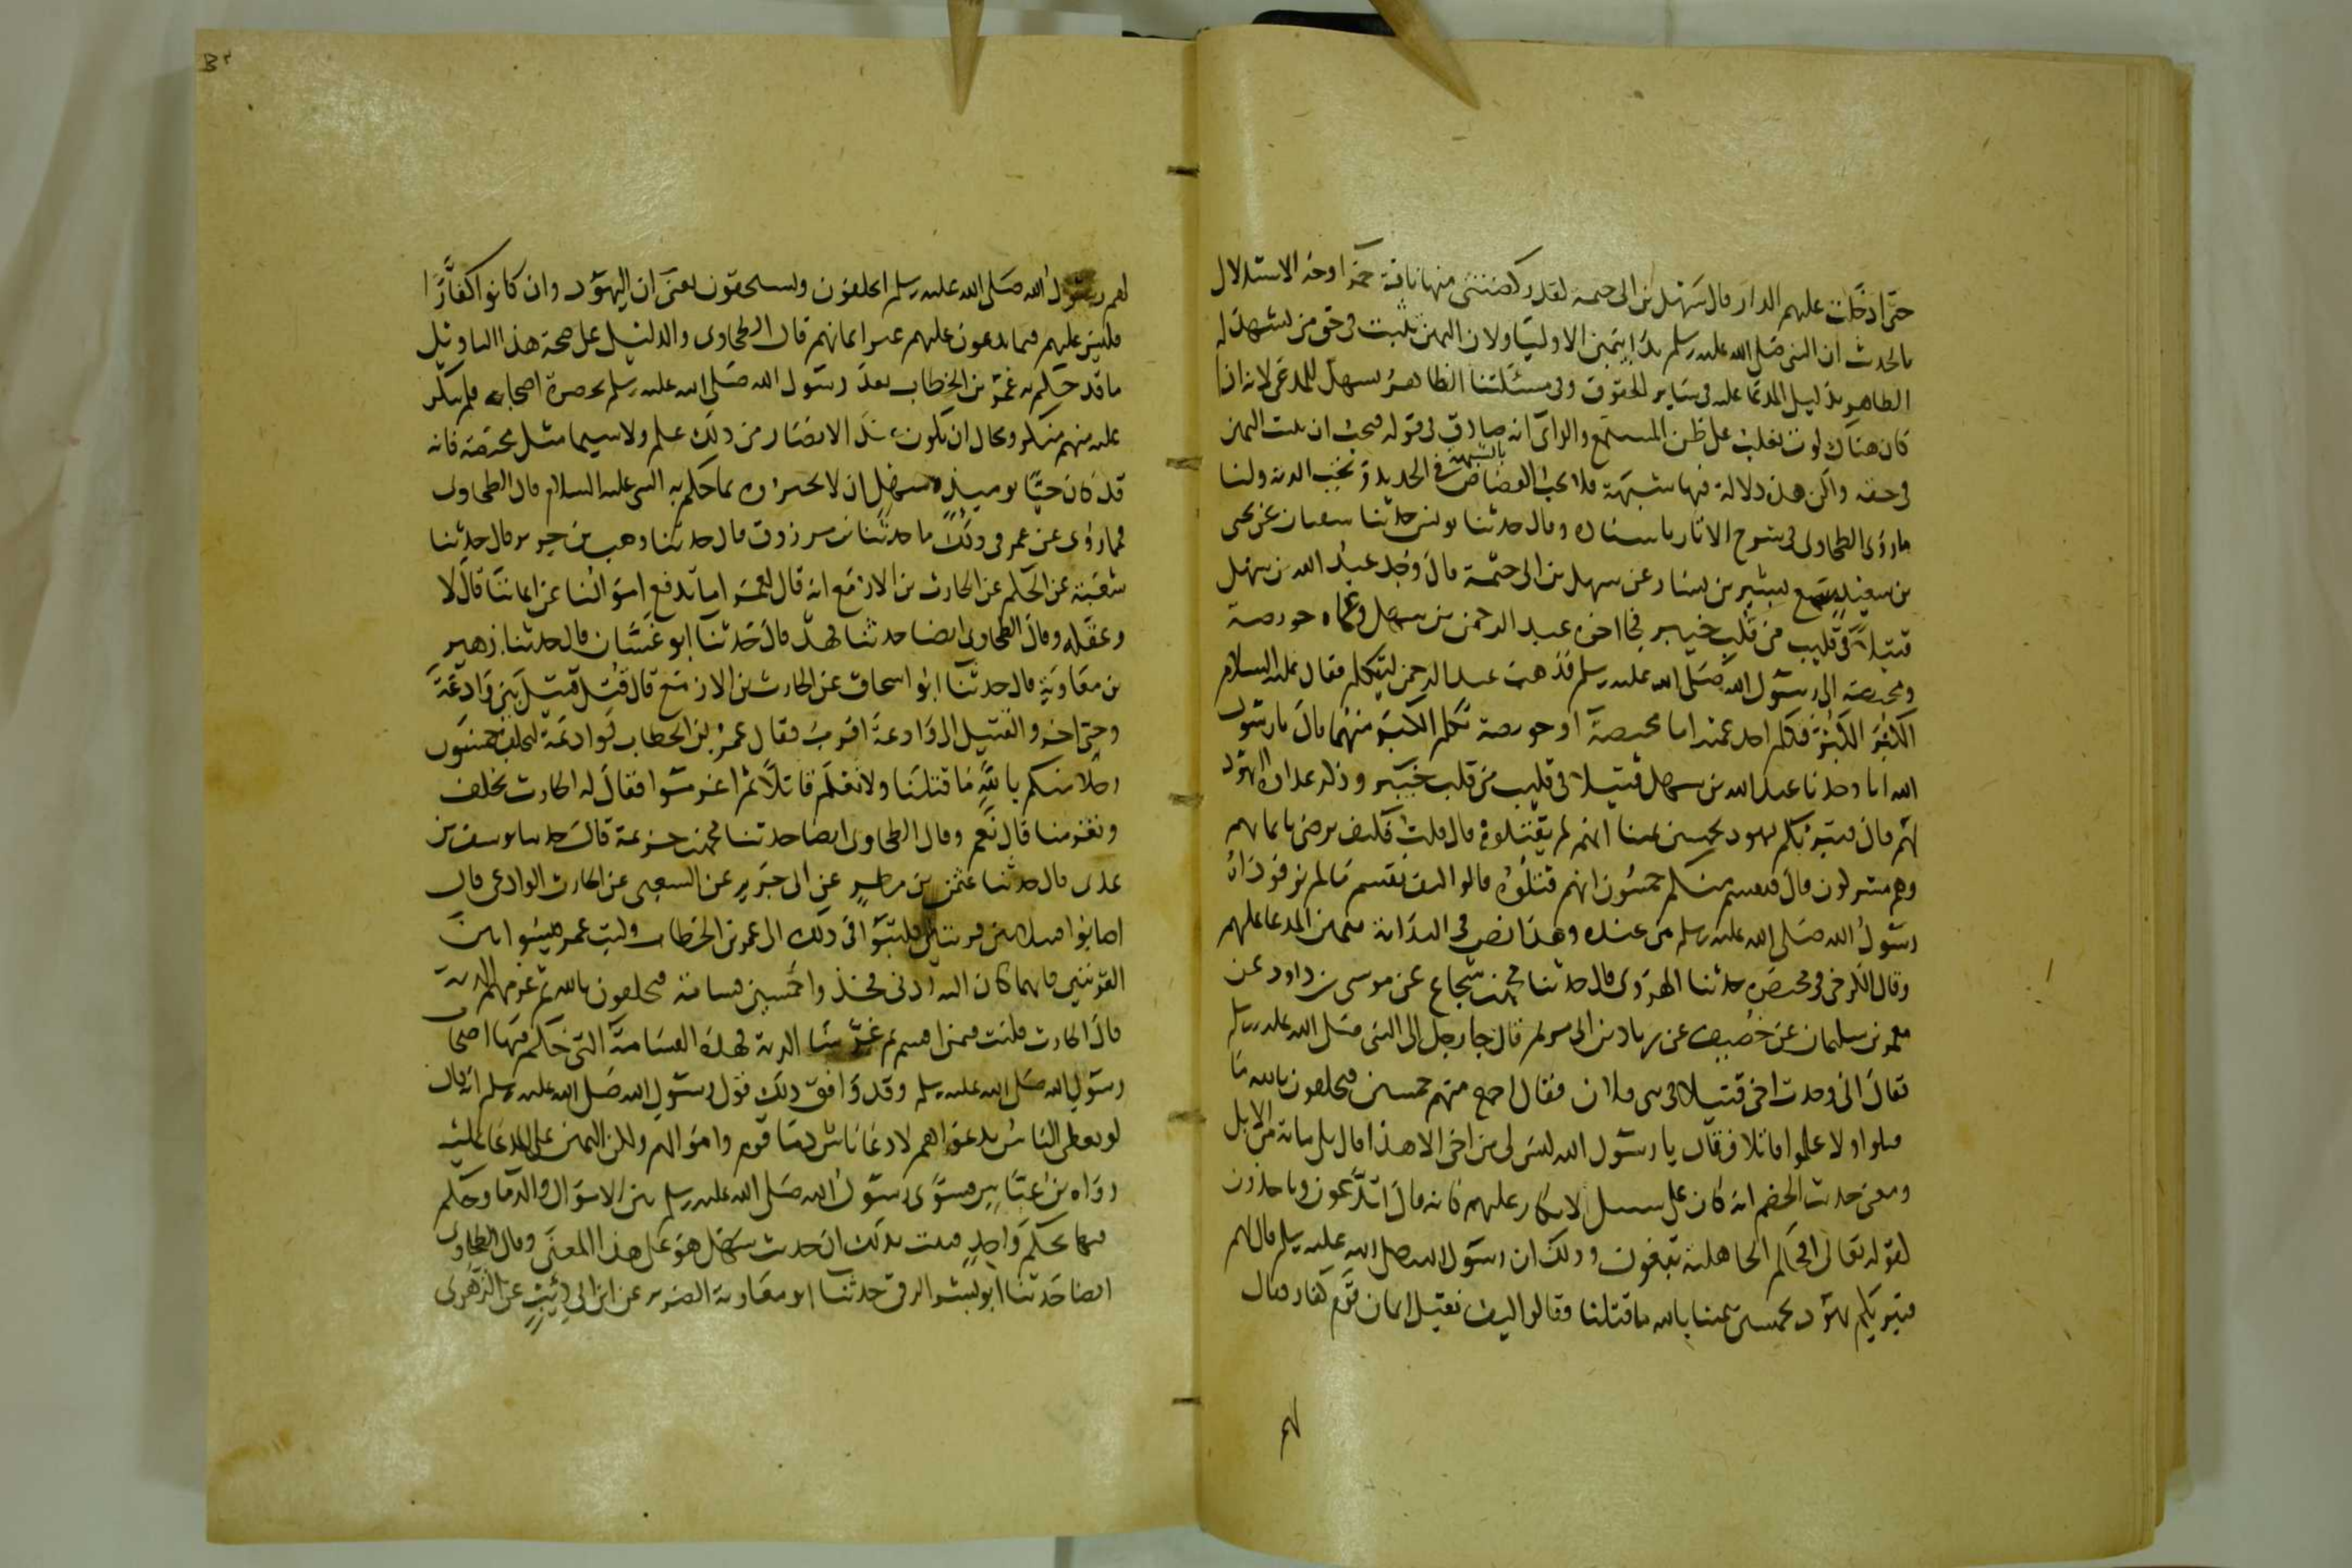 حتى ادخلت عليهم الدار قال سهل بن ابى حثمة لقد ركضتنى منها ناقة حمرا وجه الاستدلال
بالحديث ان النبى صلى الله عليه وسلم بدا بيمين الاوليا ولان اليمين تثبت فى حق من يشهد له
الظاهر بدليل المدعا عليه فى ساير الحقوق وفى مسئلتنا الظاهر يشهد للمدعى لانه اذا
كان هناك لوث يغلب على ظن المستمع والراى انه صادق فى قوله فيجب ان يثبت اليمين
فى حقه ولكن هذه دلالة فيها شبهة فلا يجب القصاص بالشبهة فى الجديد وتجب الدية ولنا
ما روى الطحاوى فى شرح الاثار باسناده وقال حدثنا يونس حدثنا سفيان عن يحى
بن سعيد سمع بشير بن يسار عن سهل بن ابى حثمة قال وجد عبد الله بن سهل
قتيلا فى قليب من قلب خيبر فجا اخوه عبد الرحمن بن سهل وعماه حويصة
ومحيصة الى رسول الله صلى الله عليه وسلم فذهب عبد الرحمن ليتكلم فقال عليه السلام
الكبر الكبر فتكلم احد عميه اما محيصة او حويصة تكلم الكبير منهما قال يا رسول
الله انا وجدنا عبد الله بن سهل قتيلا فى قليب من قلب خيبر وذكر عداوة اليهود
لهم قال فتبرئكم يهود بخمسين يمينا انهم لم يقتلوه قال قلت فكيف نرضى بايمانهم
وهم مشركون قال فيقسم منكم خمسون انهم قتلوه قالوا كيف نقسم على ما لم نره فوداه
رسول الله صلى الله عليه وسلم من عنده وهذا نص فى البداية بيمين المدعا عليهم
وقال الكرخى فى مختصره حدثنا الهروى قال حدثنا محمد بن شجاع عن موسى بن داود عن
معمر بن سليمان عن خصيف عن زياد بن ابى مريم قال جا رجل الى النبى صلى الله عليه وسلم
فقال انى وجدت اخى قتيلا فى بنى فلان فقال اجمع منهم خمسين فيحلفون بالله ما
قتلوا ولا علموا قاتلا فقال يا رسول الله ليس لى من اخى الا هذا قال بلى ماية من الابل
ومعنى حديث الخصم انه كان على سبيل الانكار عليهم كانه قال اتدعون وتاخذون
لقوله تعالى افحكم الجاهلية تبغون وذلك ان رسول الله صلى الله عليه وسلم قال لهم
فتبريكم يهود بخمسين يمينا بالله ما قتلنا فقالوا كيف نقبل ايمان قوم كفار فقال
لهم
لهم رسول الله صلى الله عليه وسلم اتحلفون وتستحقون يعنى ان اليهود وان كانوا كفارا
فليس عليهم فيما يدعون عليهم غير ايمانهم قال الطحاوى والدليل على صحة هذا التاويل
ما قد حكم به عمر بن الخطاب بعد رسول الله صلى الله عليه وسلم بحضرة اصحابه فلم ينكر
عليه منهم منكر ومحال ان يكون عند الانصار من ذلك علم ولا سيما مثل محيصة فانه
قد كان حيا يوميذ وسهل ان لا يخبروه بما حكم به النبى عليه السلام قال الطحاوى
فما روى عن عمر فى ذلك ما حدثنا بن مرزوق قال حدثنا وهب بن جرير قال حدثنا
شعبة عن الحكم عن الحارث بن الازمع انه قال لعمر اما تدفع اموالنا عن ايماننا قال لا
وعقله وقال الطحاوى ايضا حدثنا فهد قال حدثنا ابو غسان قال حدثنا زهير
بن معاوية قال حدثنا ابو اسحاق عن الحارث بن الازمع قال قتل قتيل بين وادعة
وحى اخر والقتيل الى وادعة اقرب فقال عمر بن الخطاب لوادعة ليحلف خمسون
رجلا منكم بالله ما قتلنا ولا نعلم قاتلا ثم اغرموا فقال له الحارث نحلف
وتغرمنا قال نعم وقال الطحاوى ايضا حدثنا محمد بن خزيمة قال حدثنا يوسف بن
عدى قال حدثنا عثمن بن مطر عن ابى جرير عن الشعبى عن الحارث الوادعى قال
اصابوا قتيلا بين قريتين فكتبوا فى ذلك الى عمر بن الخطاب وكتب عمر قيسوا بين
القريتين فايهما كان اليه ادنى فخذوا خمسين قسامة فيحلفون بالله ثم غرمهم الدية
قال الحارث فكنت فيمن اقسم ثم غرمنا الدية فهذه القسامة التى حكم فيها اصحاب
رسول الله صلى الله عليه وسلم وقد وافق ذلك قول رسول الله صلى الله عليه وسلم انه قال
لو يعطى الناس بدعواهم لادعا ناس دما قوم واموالهم ولكن اليمين على المدعا عليه
رواه بن عباس فسوى رسول الله صلى الله عليه وسلم بين الاموال والدما وحكم
فيها بحكم واحد فثبت بذلك ان حديث سهل هو على هذا المعنى وقال الطحاوى
ايضا حدثنا ابو بشر الرقى حدثنا ابو معاوية الضرير عن ابن ابى ذئب عن الزهرى